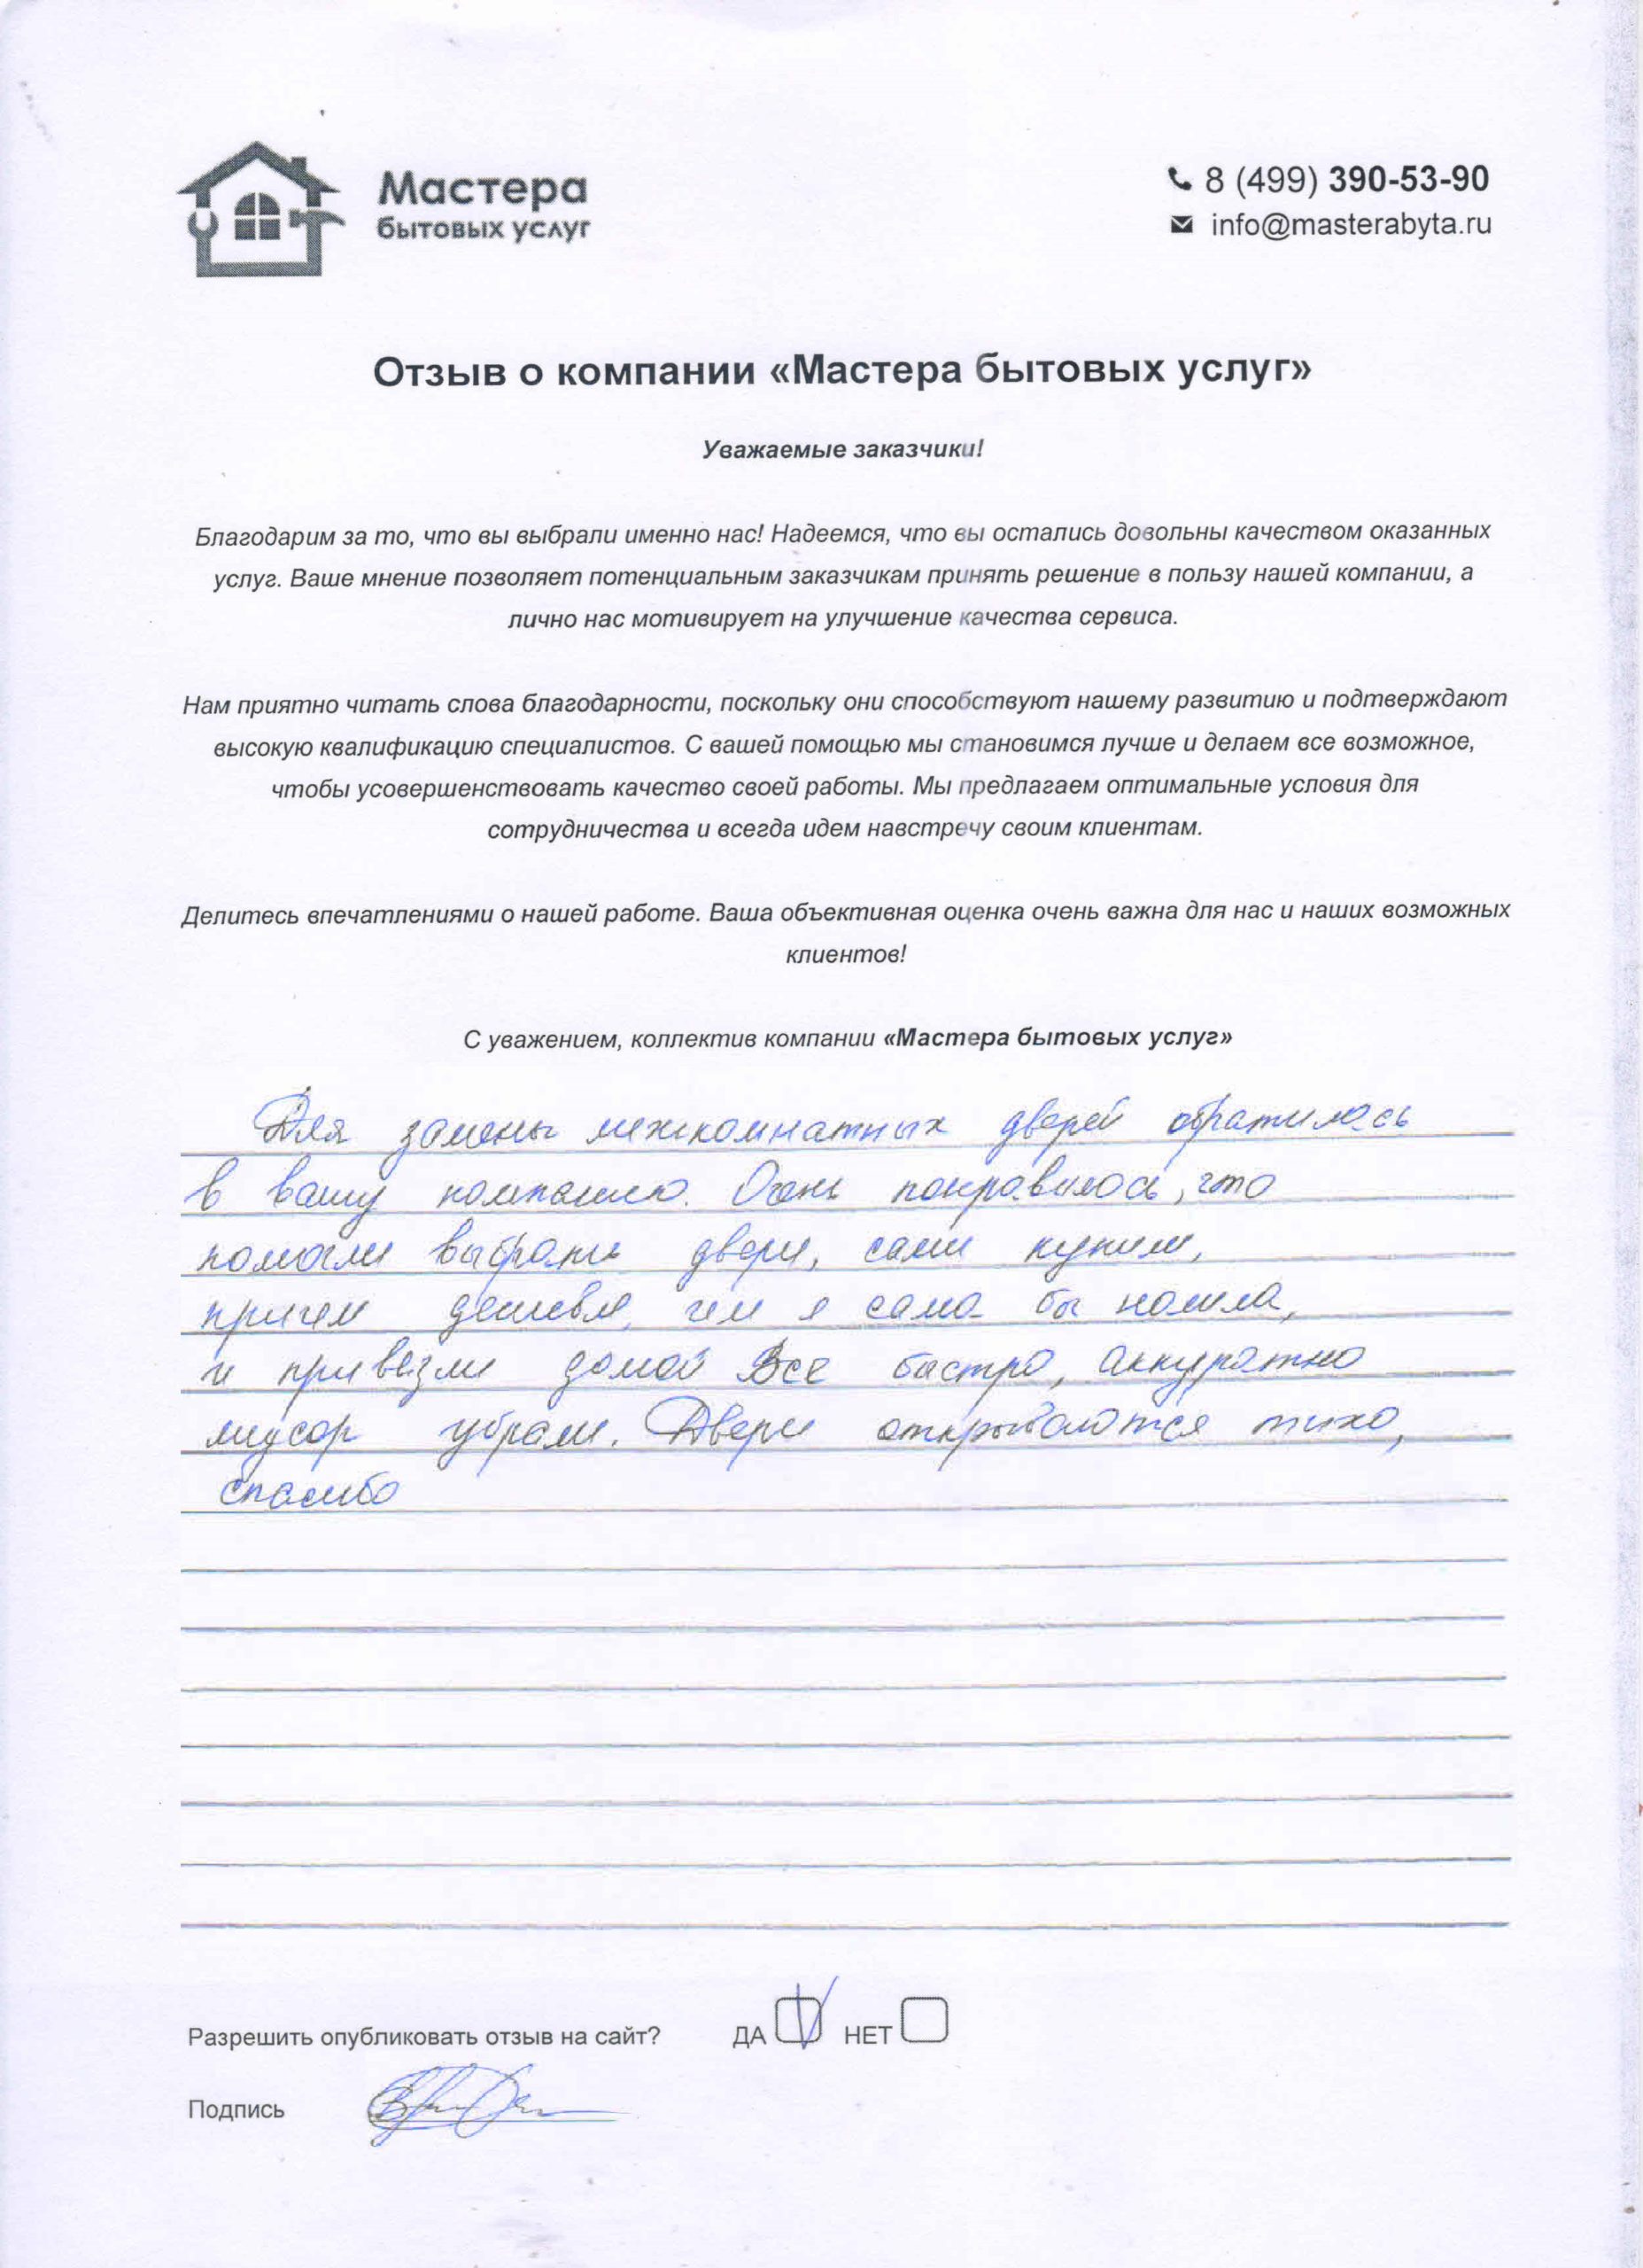 Мастера
бытовых услуг
8 (499) 390-53-90
info@masterabyta.ru
Отзыв о компании «Мастера бытовых услуг»
Уважаемые заказчики!
Благодарим за то, что вы выбрали именно нас! Надеемся, что вы остались довольны качеством оказанных
услуг. Ваше мнение позволяет потенциальным заказчикам принять решение в пользу нашей компании, а
лично нас мотивирует на улучшение качества сервиса.
Нам приятно читать слова благодарности, поскольку они способствуют нашему развитию и подтверждают
высокую квалификацию специалистов. С вашей помощью мы становимся лучше и делаем все возможное,
чтобы усовершенствовать качество своей работы. Мы предлагаем оптимальные условия для
сотрудничества и всегда идем навстречу своим клиентам.
Делитесь впечатлениями о нашей работе. Ваша объективная оценка очень важна для нас и наших возможных
клиентов!
С уважением, коллектив компании «Мастера бытовых услуг»
Для замены межкомнатных дверей обратилась
в вашу компанию. Очень понравилось, что
помогли выбрать двери, сами купили,
причем дешевле, чем я сама бы нашла,
и привезли домой Все быстро, аккуратно
мусор убрали. Двери открываются тихо,
спасибо
Разрешить опубликовать отзыв на сайт? ДА НЕТ
Подпись